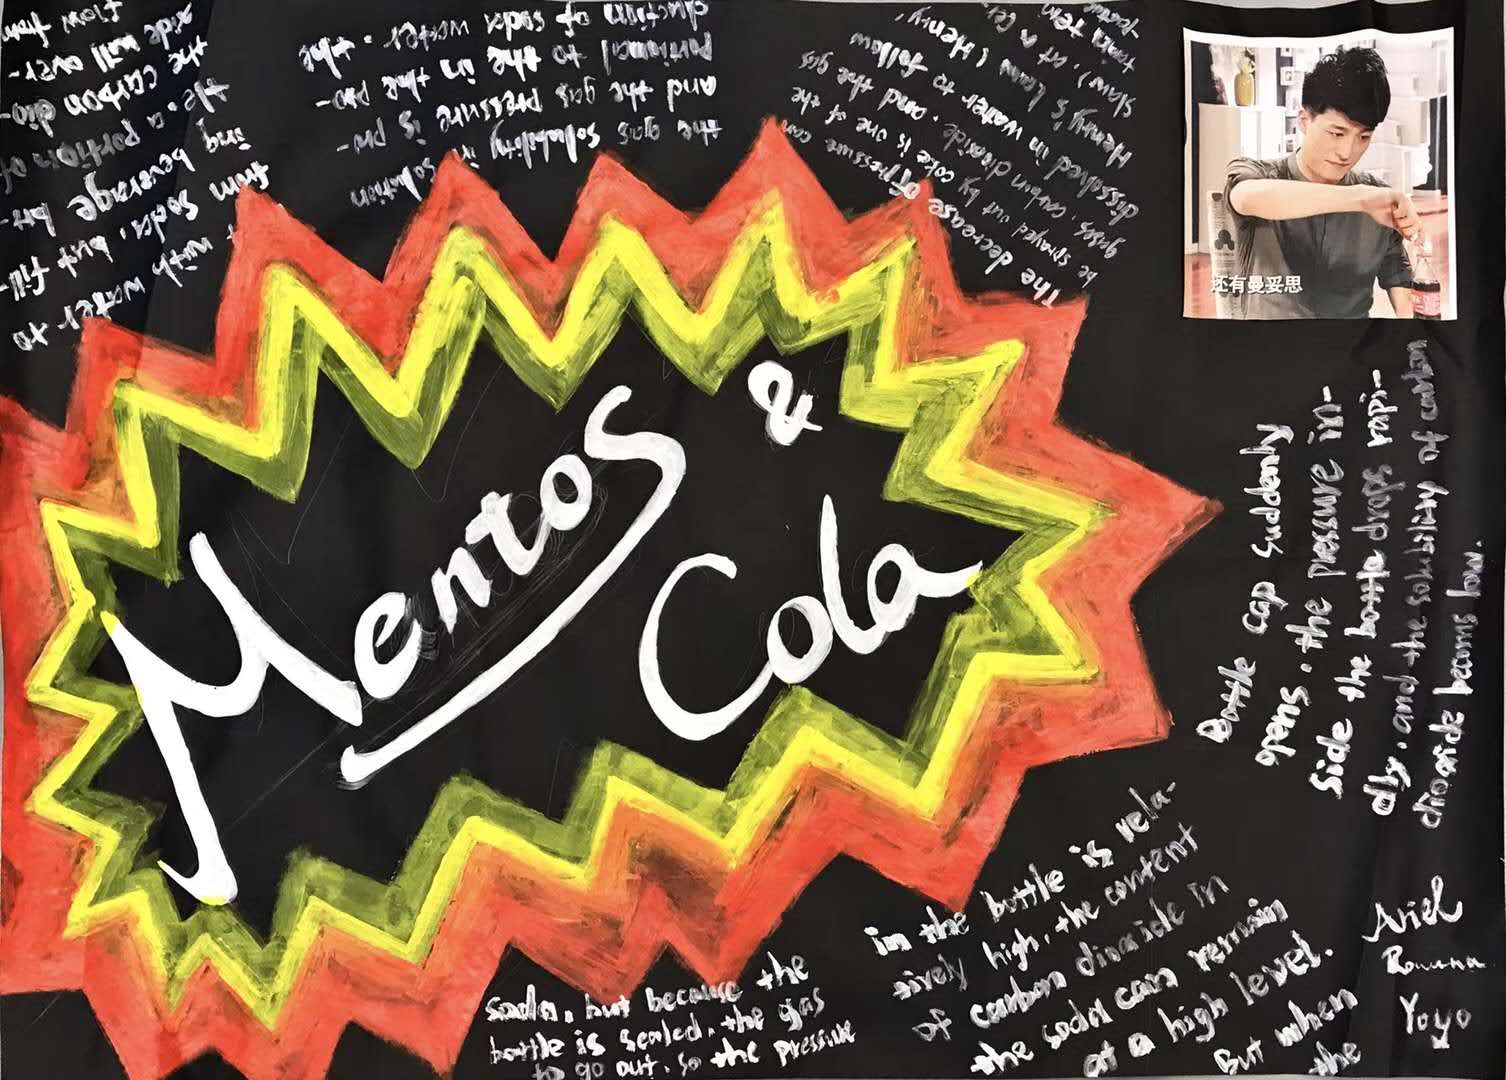 Mentos
&
Cola
还有曼妥思
The decrease of pressure can
be sprayed out by coke is one of the
gases, carbon dioxide, and the gas
dissolved in water to follow
Henry's Law (Henry'
slaw), at a cer-
tain tem
-perature
the gas solubility in solution
and the gas pressure is pro-
portional to the in the pro-
duction of soda water. the
with water to
from soda, but fill-
ing beverage bot-
tle. a portion of
the carbon dio-
xide will over-
flow from
soda, but because the
bottle is sealed, the gas
to go out, so the pressure
in the bottle is rela-
tively high, the content
of carbon dioxide in
the soda can remain
at a high level.
But when
the
Bottle cap suddenly
opens, the pressure in-
side the bottle drops rapi-
dly, and the solubility of carbon
dioxide becoms low.
Ariel
Rowena
Yoyo